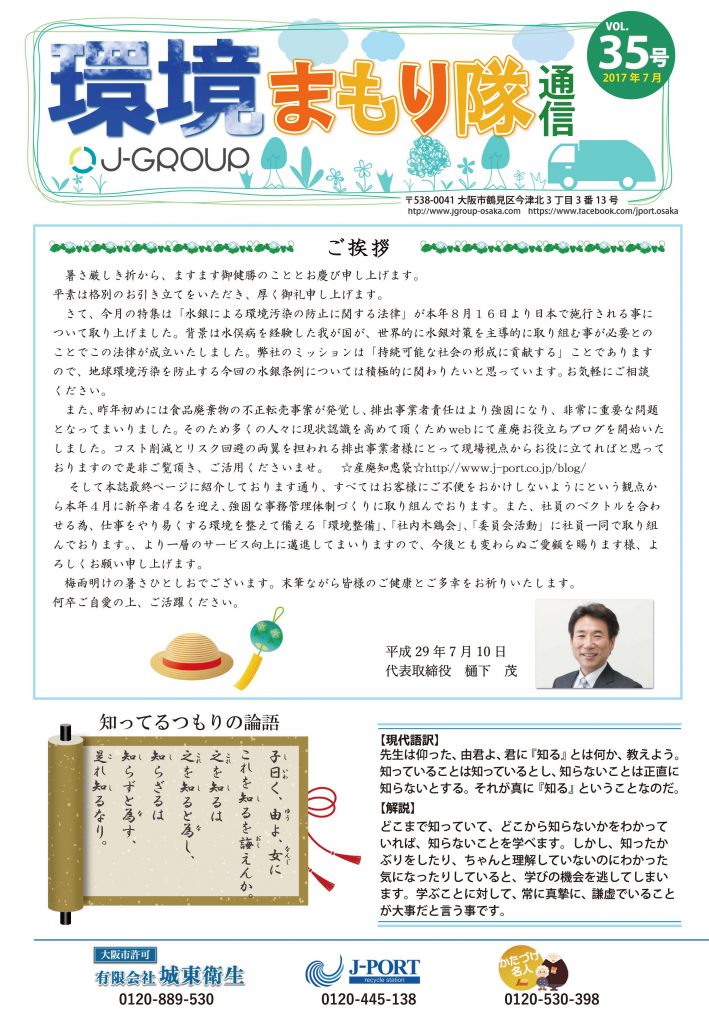 VOL.
35号
2017年7月
環境まもり隊通信
J-GROUP
〒538-0041 大阪市鶴見区今津北3丁目3番13号
http://www.jgroup-osaka.com https://www.facebook.com/jport.osaka
ご挨拶
暑さ厳しき折から、ますます御健勝のこととお慶び申し上げます。
平素は格別のお引き立てをいただき、厚く御礼申し上げます。
さて、今月の特集は「水銀による環境汚染の防止に関する法律」が本年8月16日より日本で施行される事に
ついて取り上げました。背景は水俣病を経験した我が国が、世界的に水銀対策を主導的に取り組む事が必要との
ことでこの法律が成立いたしました。弊社のミッションは「持続可能な社会の形成に貢献する」ことであります
ので、地球環境汚染を防止する今回の水銀条例については積極的に関わりたいと思っています。お気軽にご相談
ください。
また、昨年初めには食品廃棄物の不正転売事案が発覚し、排出事業者責任はより強固になり、非常に重要な問題
となってまいりました。そのため多くの人々に現状認識を高めて頂くためwebにて産廃お役立ちブログを開始いた
しました。コスト削減とリスク回避の両翼を担われる排出事業者様にとって現場視点からお役に立てればと思って
おりますので是非ご覧頂き、ご活用くださいませ。 ☆産廃知恵袋☆http://www.j-port.co.jp/blog/
そして本誌最終ページに紹介しております通り、すべてはお客様にご不便をおかけしないようにという観点か
ら本年4月に新卒者4名を迎え、強固な事務管理体制づくりに取り組んでおります。また、社員のベクトルを合わ
せる為、仕事をやり易くする環境を整えて備える「環境整備」、「社内木鶏会」、「委員会活動」に社員一同で取り組
んでおります。、より一層のサービス向上に邁進してまいりますので、今後とも変わらぬご愛顧を賜ります様、よ
ろしくお願い申し上げます。
梅雨明けの暑さひとしおでございます。末筆ながら皆様のご健康とご多幸をお祈りいたします。
何卒ご自愛の上、ご活躍ください。
平成29年7月10日
代表取締役 樋下 茂
知ってるつもりの論語
子曰く、由よ、女に
これを知るを誨えんか。
之を知るは
之を知ると為し、
知らざるは
知らずと為す、
是れ知るなり。
【現代語訳】
先生は仰った、由君よ、君に『知る』とは何か、教えよう。
知っていることは知っているとし、知らないことは正直に
知らないとする。それが真に『知る』ということなのだ。
【解説】
どこまで知っていて、どこから知らないかをわかって
いれば、知らないことを学べます。しかし、知ったか
ぶりをしたり、ちゃんと理解していないのにわかった
気になったりしていると、学びの機会を逃してしまい
ます。学ぶことに対して、常に真摯に、謙虚でいること
が大事だと言う事です。
大阪市許可
有限会社 城東衛生
0120-889-530
J-PORT
recycle station
0120-445-138
かたづけ
名人
0120-530-398